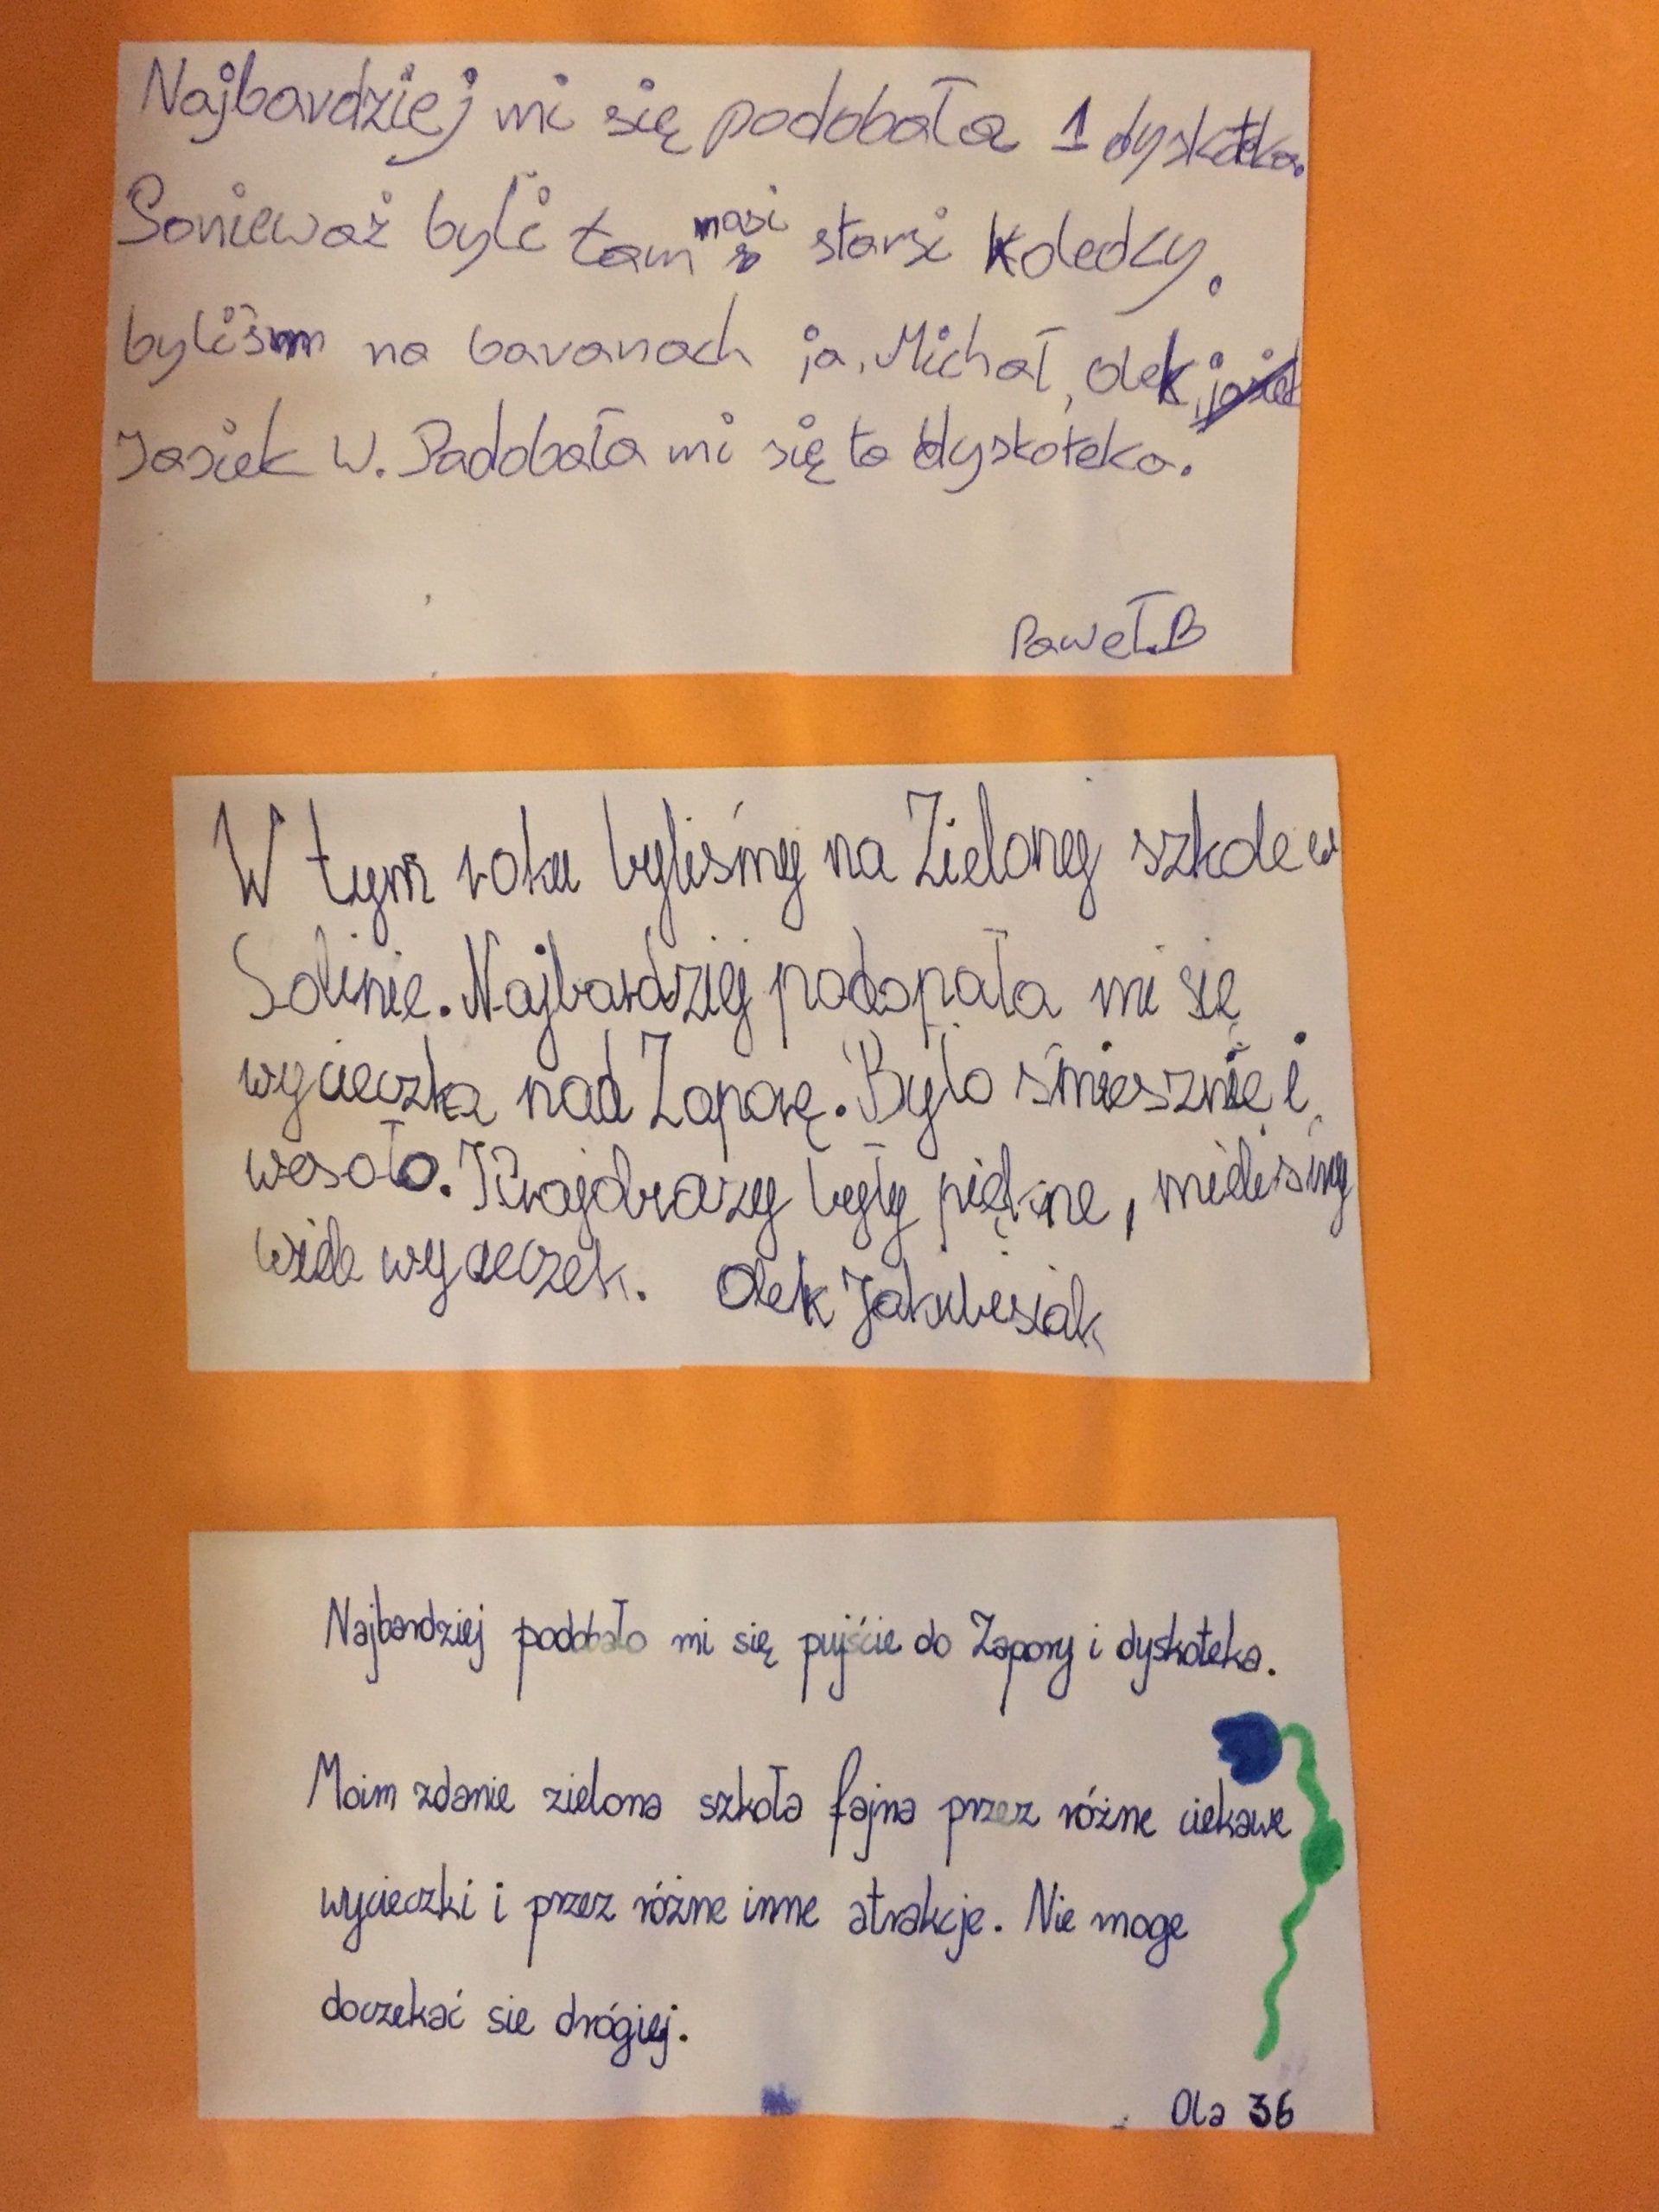 Najbardziej mi się podobała 1 dyskoteka.
Poniewoż byli tam nasi starsi koledzy.
byliśm na baranach ja, Michał, Olek,
Jasiek W. Podobała mi się ta dyskoteka.
Paweł.B
W tym roku byliśmy na Zieloney szkole w
Solinie. Najbardziej podopała mi się
wycieczka nad Zaporę. Było śmiesznie i
wesoło. Krajobrazy były piękne, mieliśmy
wiele wycieczek. Olek Jakubesiak
Najbardziej podobało mi się pujście do Zapory i dyskoteka.
Moim zdanie zielona szkoła fajna przez różne ciekawe
wycieczki i przez różne inne atrakcje. Nie moge
doczekać sie drógiej.
Ola 36